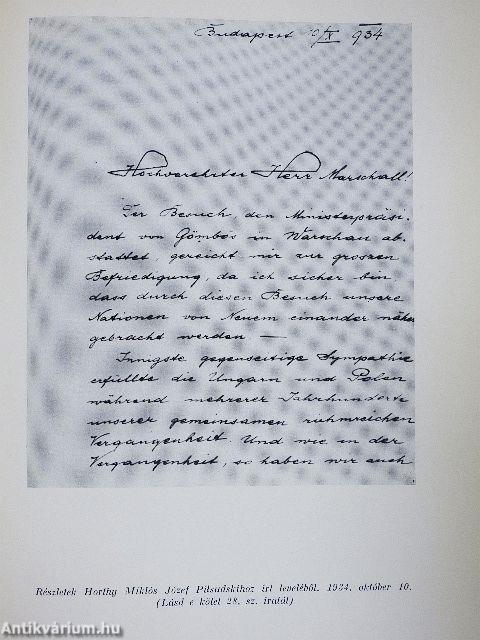 Budapest 10/X 934
Hochverehrter Herr Marschall!
Der Besuch, den Ministerpräsi-
dent von Gömbös in Warschau ab-
stattet, gereicht mir zur grossen
Befriedigung, da ich sicher bin,
dass durch diesen Besuch unsere
Nationen von Neuem einander näher
gebracht werden —
Innigste gegenseitige Sympathie
erfüllte die Ungarn und Polen
während mehrerer Jahrhunderte
unserer gemeinsamen ruhmreichen
Vergangenheit. Und wie in der
Vergangenheit, so haben wir auch
Részletek Horthy Miklós József Pilsudskihoz írt leveléből. 1934. október 10.
(Lásd e kötet 28. sz. iratát)
Antikvárium.hu